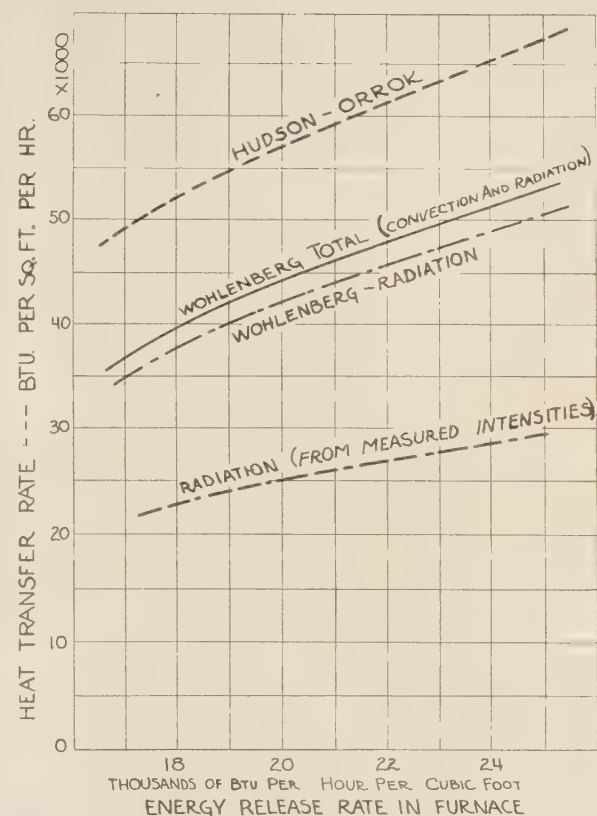 HEAT TRANSFER RATE --- BTU. PER SQ. FT. PER HR.
X1000
60
50
40
30
20
10
0
HUDSON-ORROK
WOHLENBERG TOTAL (CONVECTION AND RADIATION)
WOHLENBERG-RADIATION
RADIATION (FROM MEASURED INTENSITIES)
18 20 22 24
THOUSANDS OF BTU PER HOUR PER CUBIC FOOT
ENERGY RELEASE RATE IN FURNACE